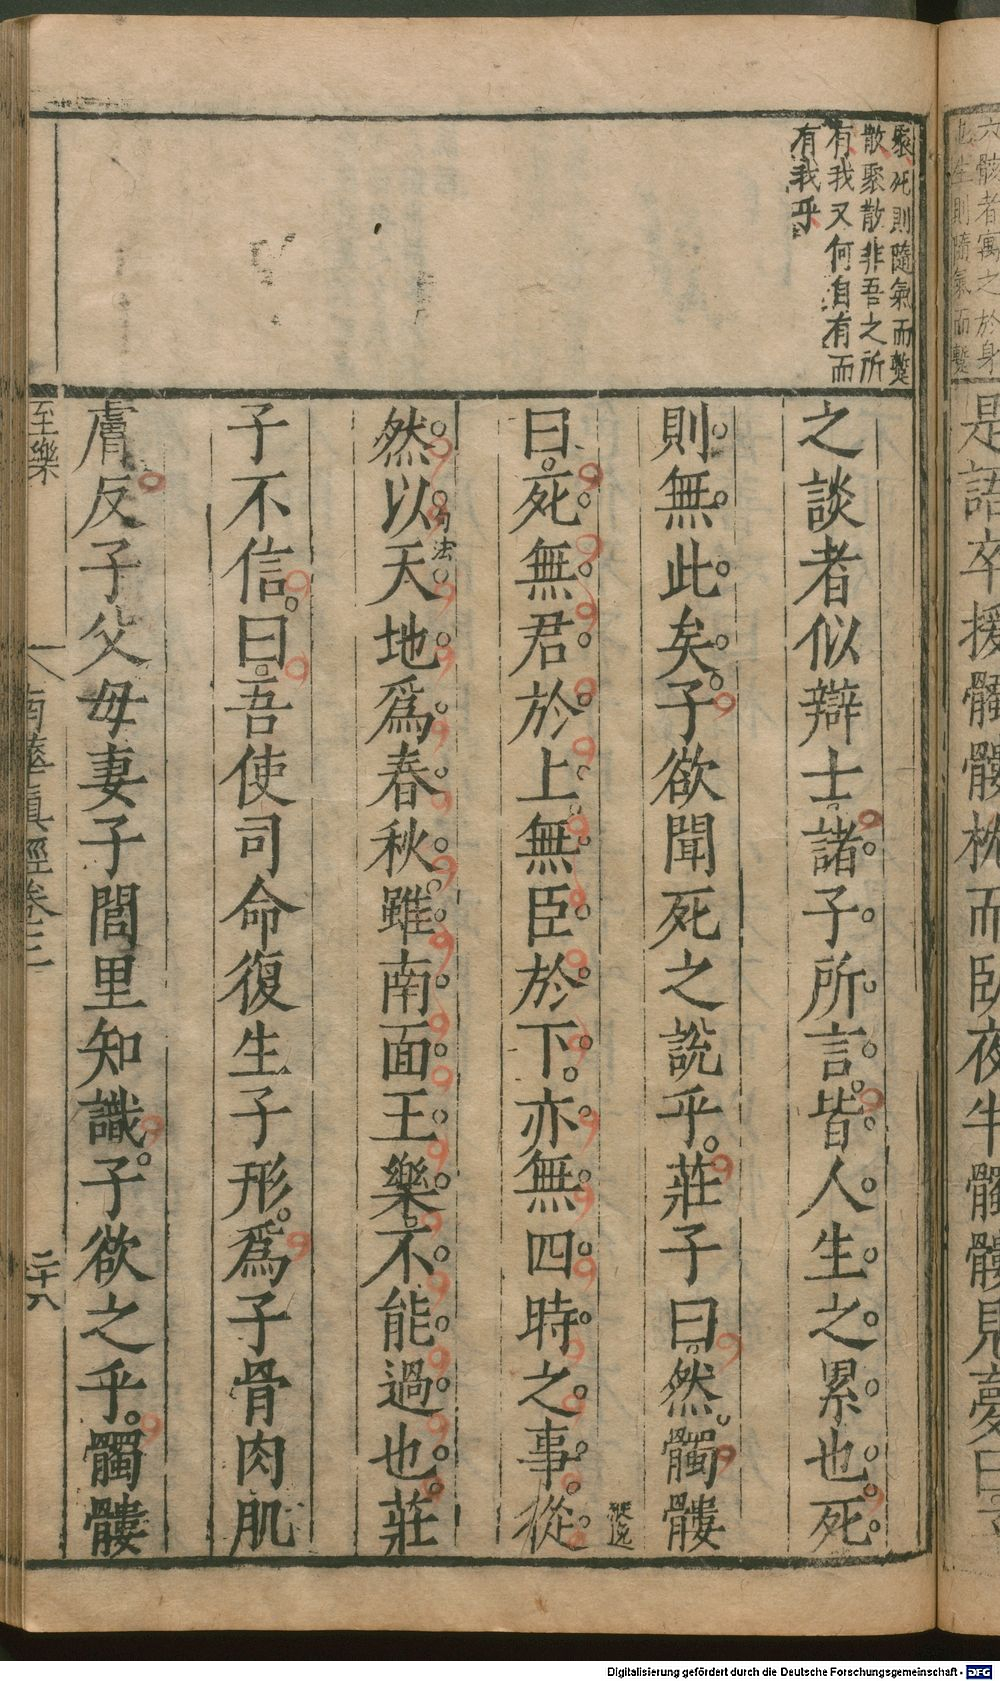 六骸者寓之於身
也生則隨氣而蘷
是語卒援髑髏枕而臥夜半髑髏見夢曰
聚死則隨氣而蘷
散聚散非吾之所
有我又何自有而
有我乎
之談者似辯士。諸子所言。皆人生之累也。死
則無此矣。子欲聞死之說乎。莊子曰。然。髑髏
曰。死。無君於上。無臣於下。亦無四時之事。從
然以天地爲春秋。雖南面王樂。不能過也。莊
句法
子不信。曰。吾使司命復生子形。爲子骨肉肌
膚。反子父母妻子閭里知識。子欲之乎。髑髏
至樂
南華真經卷三
二十八
Digitalisierung gefördert durch die Deutsche Forschungsgemeinschaft - DFG